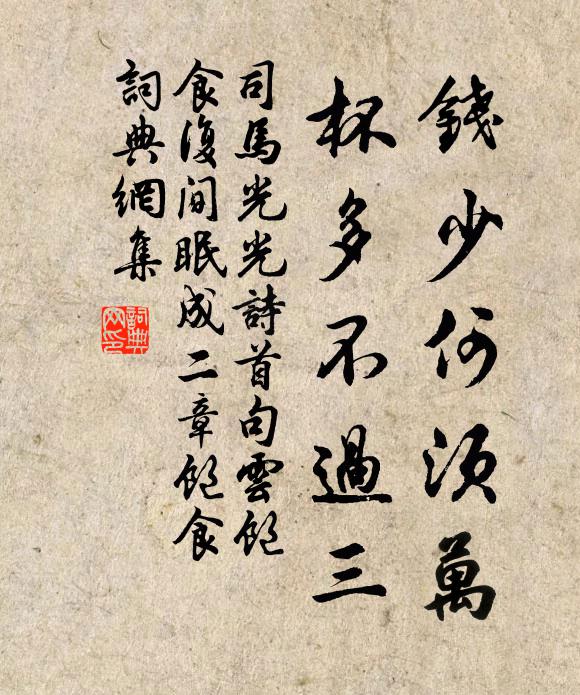 錢少何須萬
杯多不過三
司馬光光詩首句雲飽
食復閒眠成二章飽食
詞典網集
詞典
网印